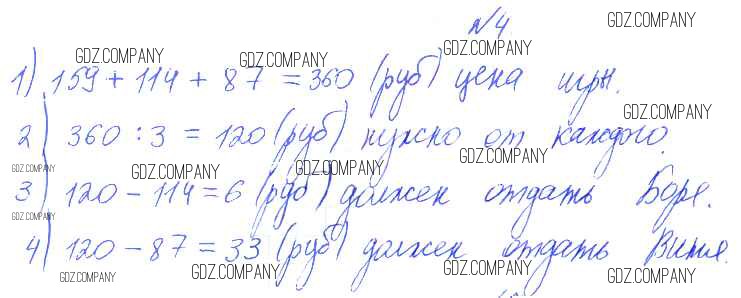 №4
1) 159 + 114 + 87 = 360 (руб) цена игры.
2) 360 : 3 = 120 (руб) нужно от каждого.
3) 120 - 114 = 6 (руб) должен отдать Боре.
4) 120 - 87 = 33 (руб) должен отдать Вите.
GDZ.COMPANY
GDZ.COMPANY
GDZ.COMPANY
GDZ.COMPANY
GDZ.COMPANY
GDZ.COMPANY
GDZ.COMPANY
GDZ.COMPANY
GDZ.COMPANY
GDZ.COMPANY
GDZ.COMPANY
GDZ.COMPANY
GDZ.COMPANY
GDZ.COMPANY